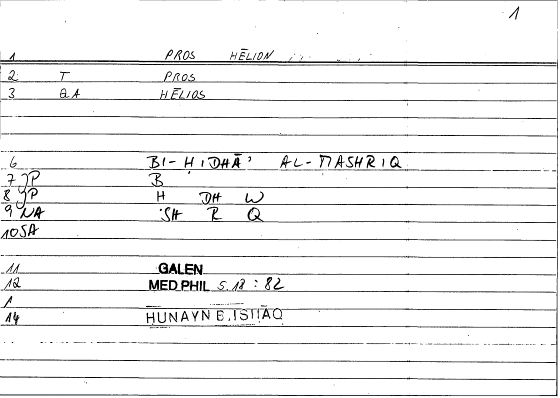 1
1 PROS HĒLION
2 T PROS
3 QA HĒLIOS
6 BI-HIDHĀ' AL-MASHRIQ
7 JP B
8 JP H DH W
9 NA SH R Q
10 SA
11 GALEN
12 MED PHIL 5.18 : 82
1
14 HUNAYN B. ISHĀQ